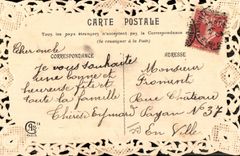 CARTE POSTALE
Tous les pays étrangers n'acceptent pas la Correspondance
(Se renseigner à la Poste)
CORRESPONDANCE
Cher oncle
Je vous souhaite
une bonne et
heureuse fête et
toute la famille
ADRESSE
Monsieur
Froment
Rue
37
En Ville